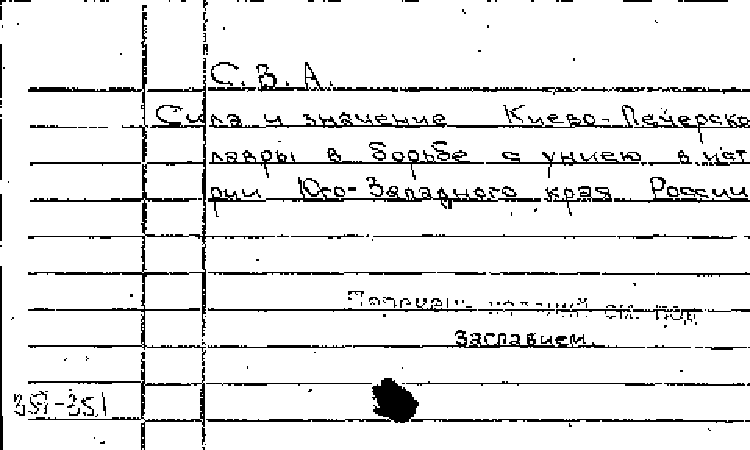 С. В. А.
Сила и значение Киево-Печерско
лавры в борьбе с униею в ист
рии Юго-Западного края России
Перечень изданий см. под
Заглавием.
351-351